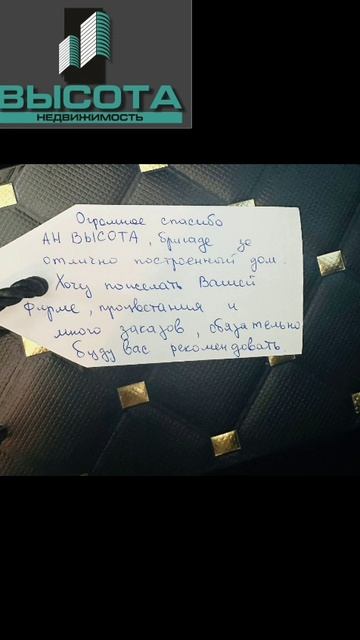 ВЫСОТА
НЕДВИЖИМОСТЬ
Огромное спасибо
АН ВЫСОТА, бригаде за
отлично построенный дом.
Хочу пожелать Вашей
фирме, процветания и
много заказов, обязательно
буду вас рекомендовать